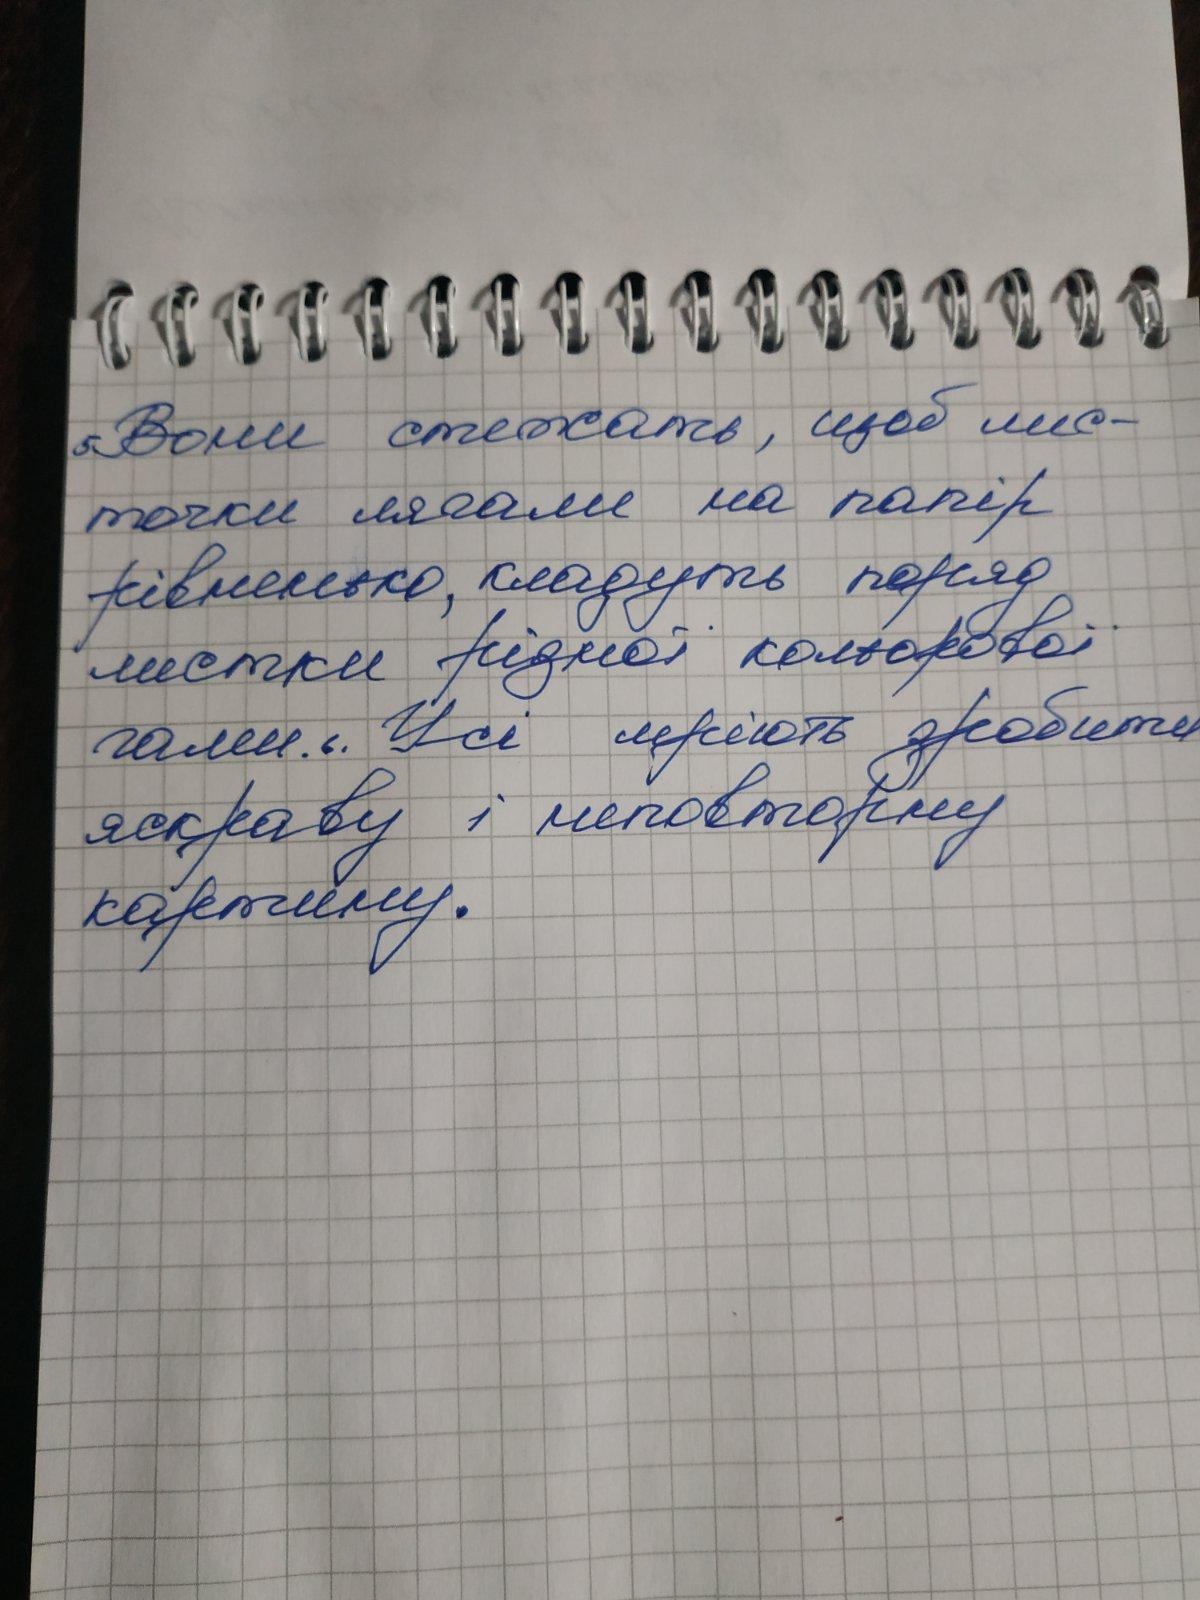 5. Вони стежать, щоб лис-
точки лягали на папір
рівненько, кладуть поряд
листки рідної кольорової
гами. 6. Усі мріють зробити
яскраву і неповторну
картину.